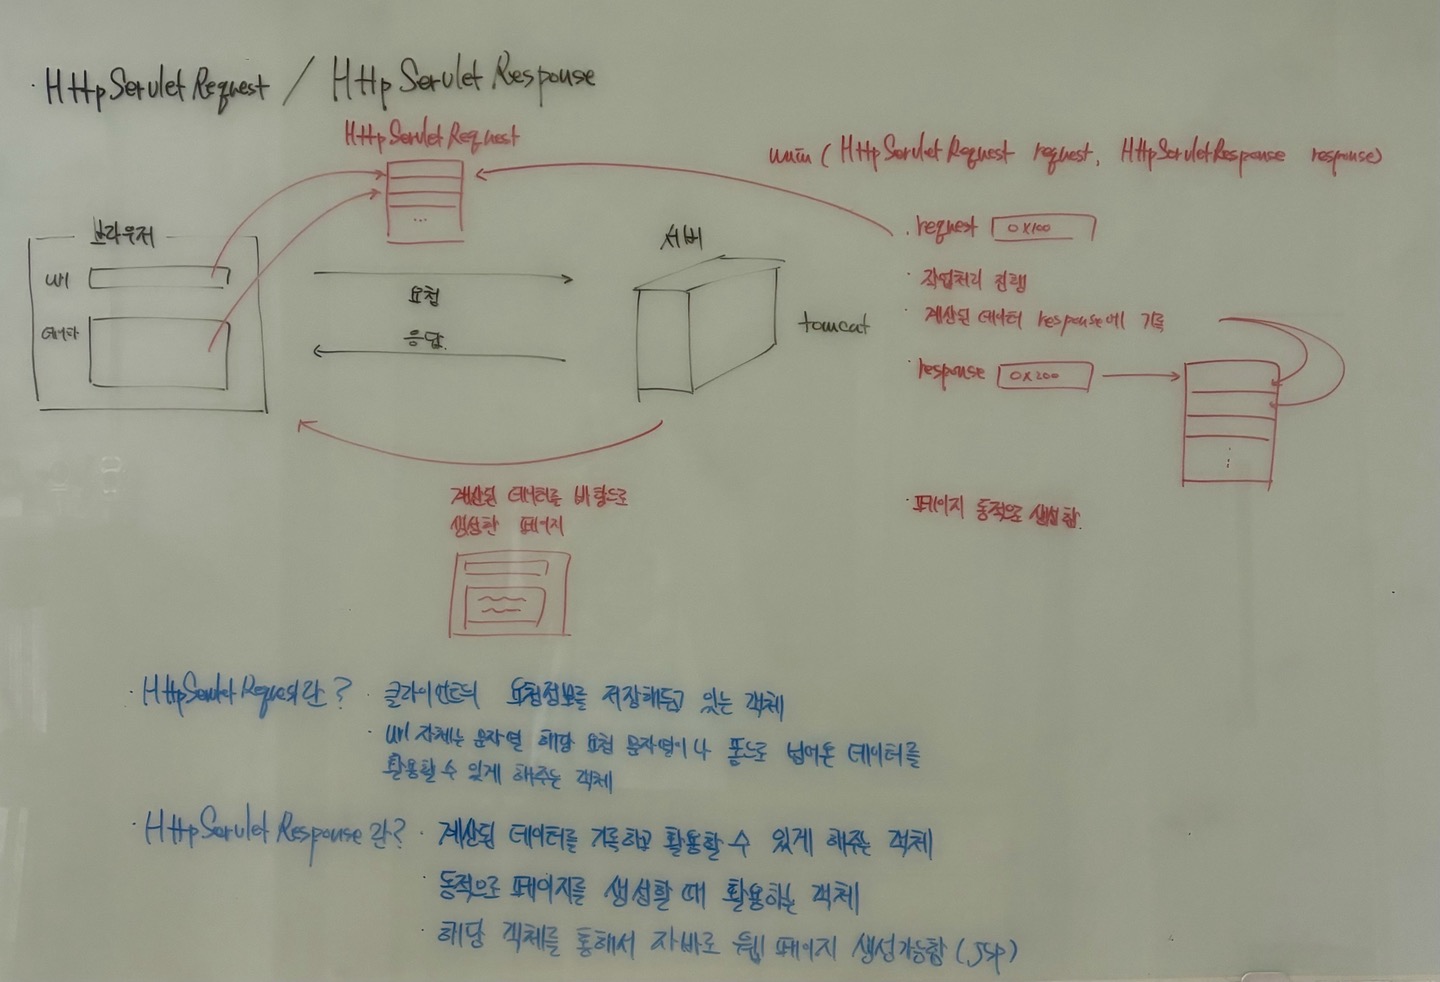 · HttpServletRequest / HttpServletResponse
HttpServletRequest
main ( HttpServletRequest request, HttpServletResponse response)
...
브라우저
url
데이터
요청
응답
서버
tomcat
· request 0x100
· 작업처리 진행
· 계산된 데이터 response에 기록
· response 0x200
· 페이지 동적으로 생성함.
계산된 데이터를 바탕으로
생성한 페이지
· HttpServletRequest란? · 클라이언트의 요청정보를 저장해두고 있는 객체
· url 자체는 문자열 해당 요청 문자열이나 폼으로 넘어온 데이터를
활용할 수 있게 해주는 객체
· HttpServletResponse란? · 계산된 데이터를 기록하고 활용할 수 있게 해주는 객체
· 동적으로 페이지를 생성할 때 활용하는 객체
· 해당 객체를 통해서 자바로 웹 페이지 생성가능함 (JSP)